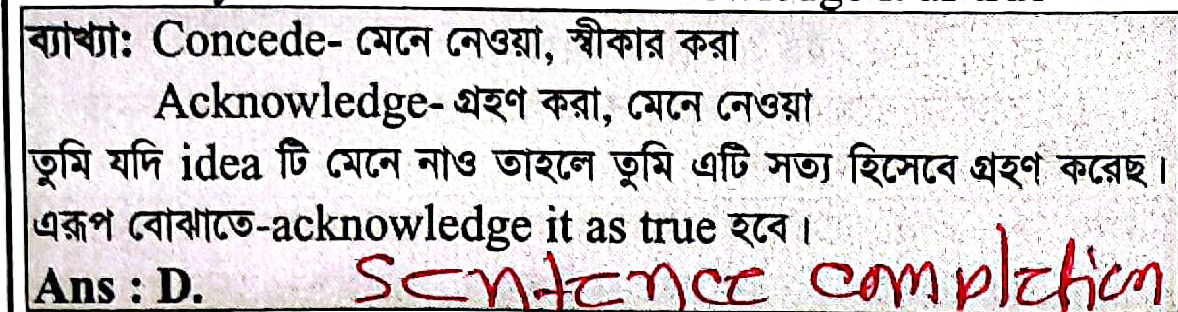 ব্যাখ্যা: Concede- মেনে নেওয়া, স্বীকার করা
Acknowledge- গ্রহণ করা, মেনে নেওয়া
তুমি যদি idea টি মেনে নাও তাহলে তুমি এটি সত্য হিসেবে গ্রহণ করেছ।
এরূপ বোঝাতে-acknowledge it as true হবে।
Ans : D. Sentence completion